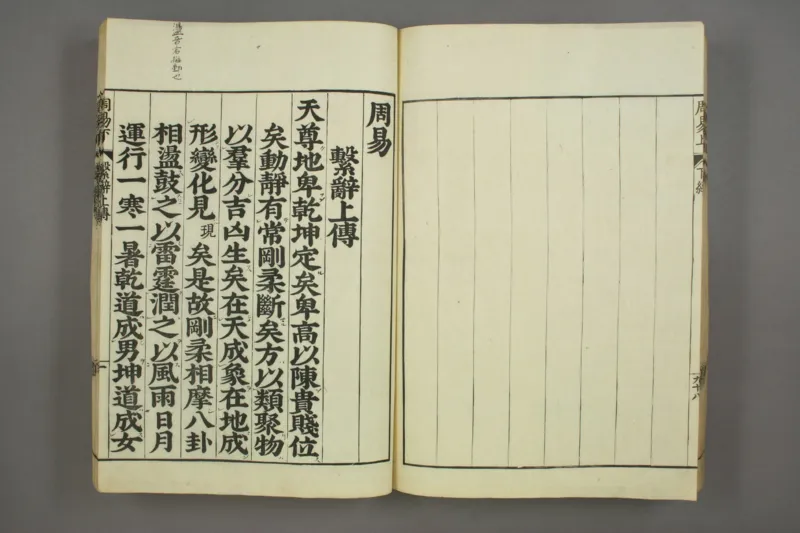 周易上
下經
九十八
周易
繫辭上傳
天尊地卑乾坤定矣卑高以陳貴賤位
矣動靜有常剛柔斷矣方以類聚物
以羣分吉凶生矣在天成象在地成
形變化見現矣是故剛柔相摩八卦
相盪鼓之以雷霆潤之以風雨日月
運行一寒一暑乾道成男坤道成女
周易下
繫辭上傳
一